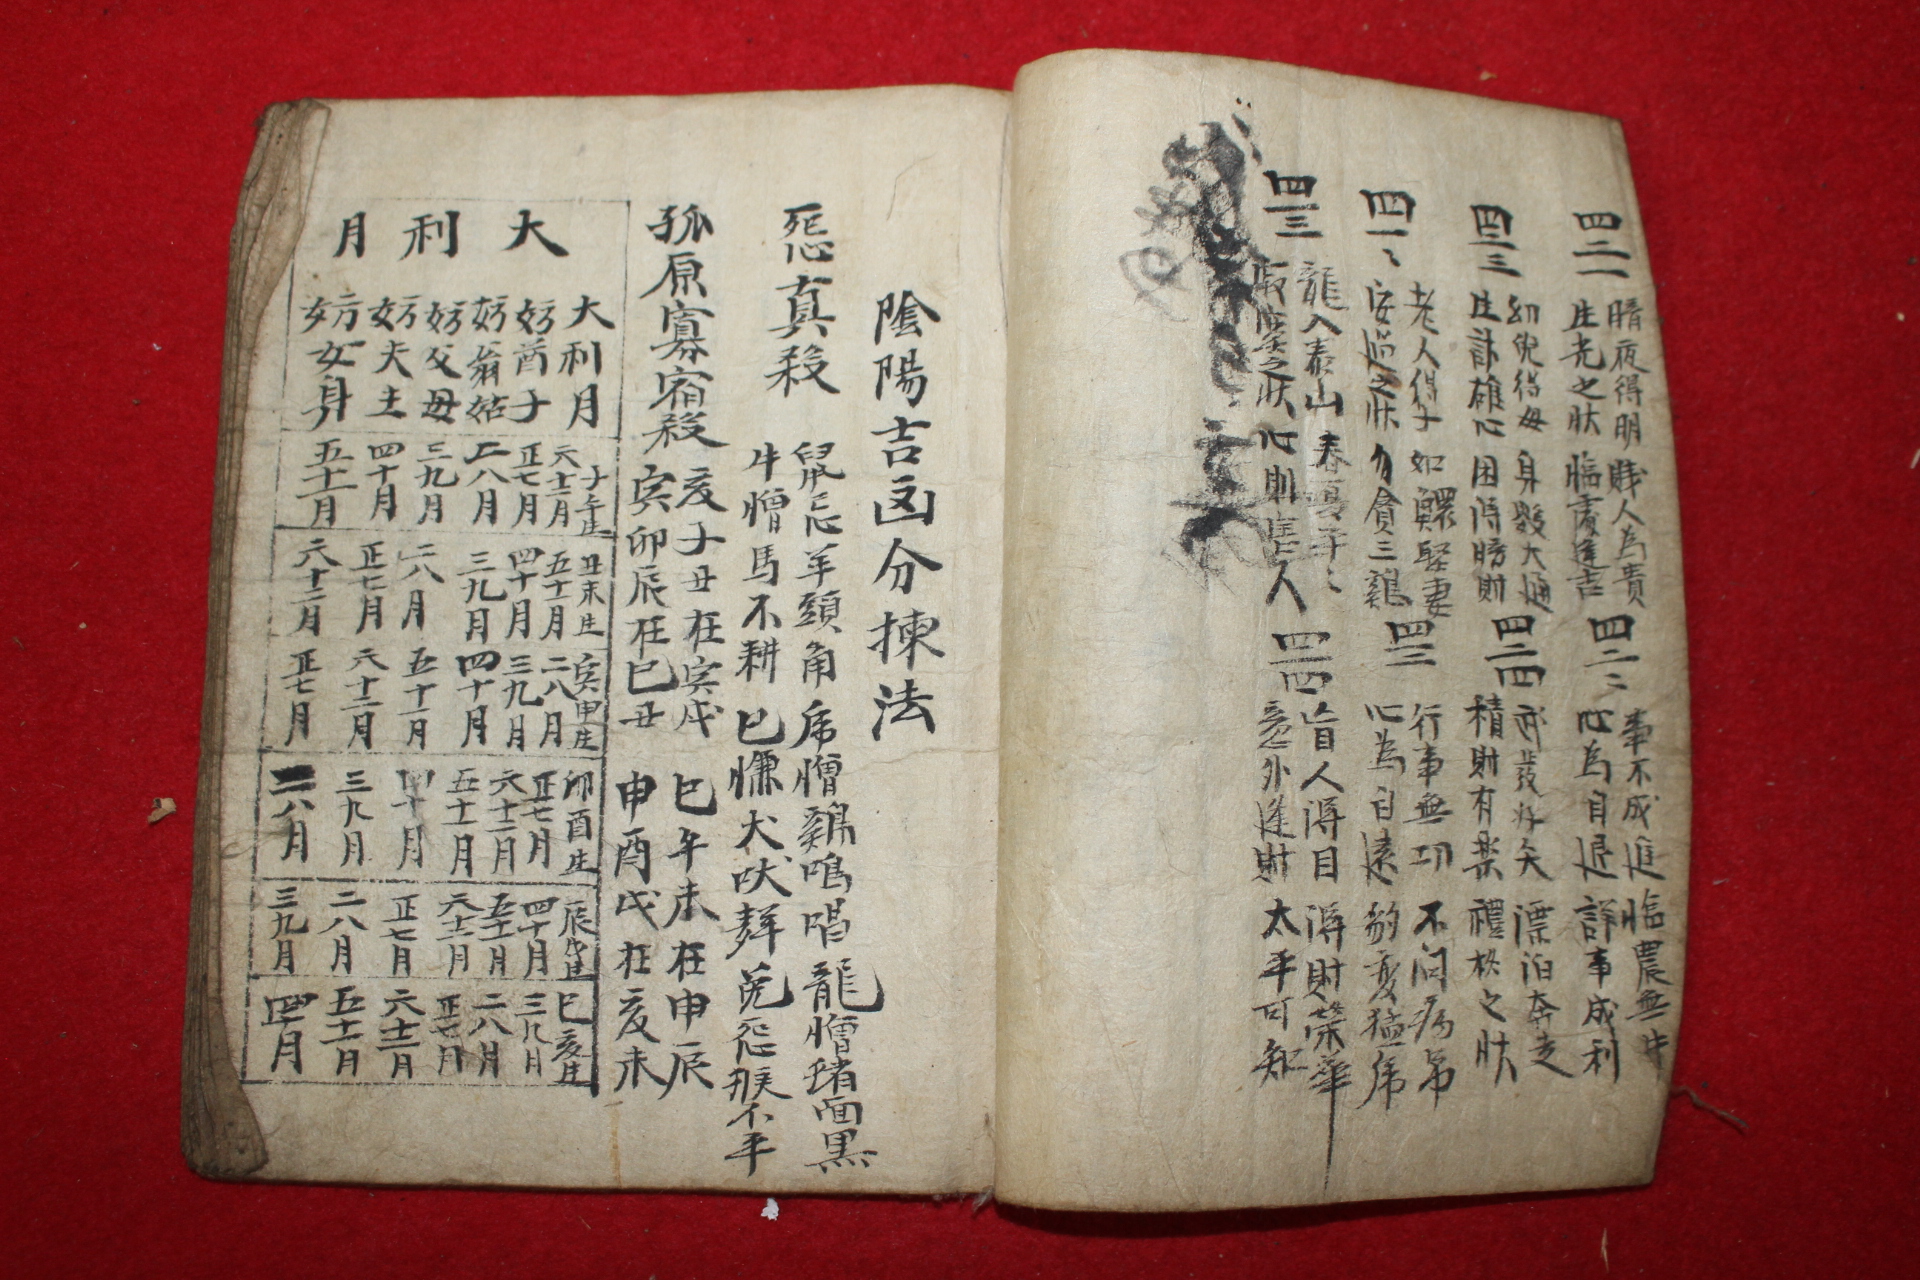 四二一
暗夜得明 賤人為貴
生光之狀 臨㐫逢吉
四二二
事不成進 臨農無牛
心為自退 諸事成利
四二三
幼兒得母 身數大通
生計雄心 困得勝財
四二四
漂泊奔走
積財有樂 禮格之狀
四三一
老人得子 如鰥娶妻
安過之狀 勿貪三鷄
四三二
行事無功 不問病吊
心為自遠 豹變猛虎
四三三
龍入泰山 春夏
之狀 心則害人
四三四
盲人得目 得財榮華
意外逢財 太平可知
陰陽吉凶分揀法
怨真殺
鼠忌羊頭角 虎憎鷄鳴唱 龍憎猪面黑
牛憎馬不耕 巳慊犬吠聲 兎怨猴不平
孤原寡宿殺
亥子丑在寅戌 巳午未在申辰
寅卯辰在巳丑 申酉戌在亥未
大利月
大利月 子午生 六十二月 丑未生 五十一月 寅申生 二八月 卯酉生 正七月 辰戌生 四十月 巳亥生 三九月
妨首子 正七月 四十月 三九月 六十二月 五十一月 二八月
妨翁姑 二八月 三九月 四十月 五十一月 六十二月 正七月
妨父母 三九月 二八月 五十一月 四十月 正七月 六十二月
妨夫主 四十月 正七月 六十二月 三九月 二八月 五十一月
妨女身 五十一月 六十二月 正七月 二八月 三九月 四十月